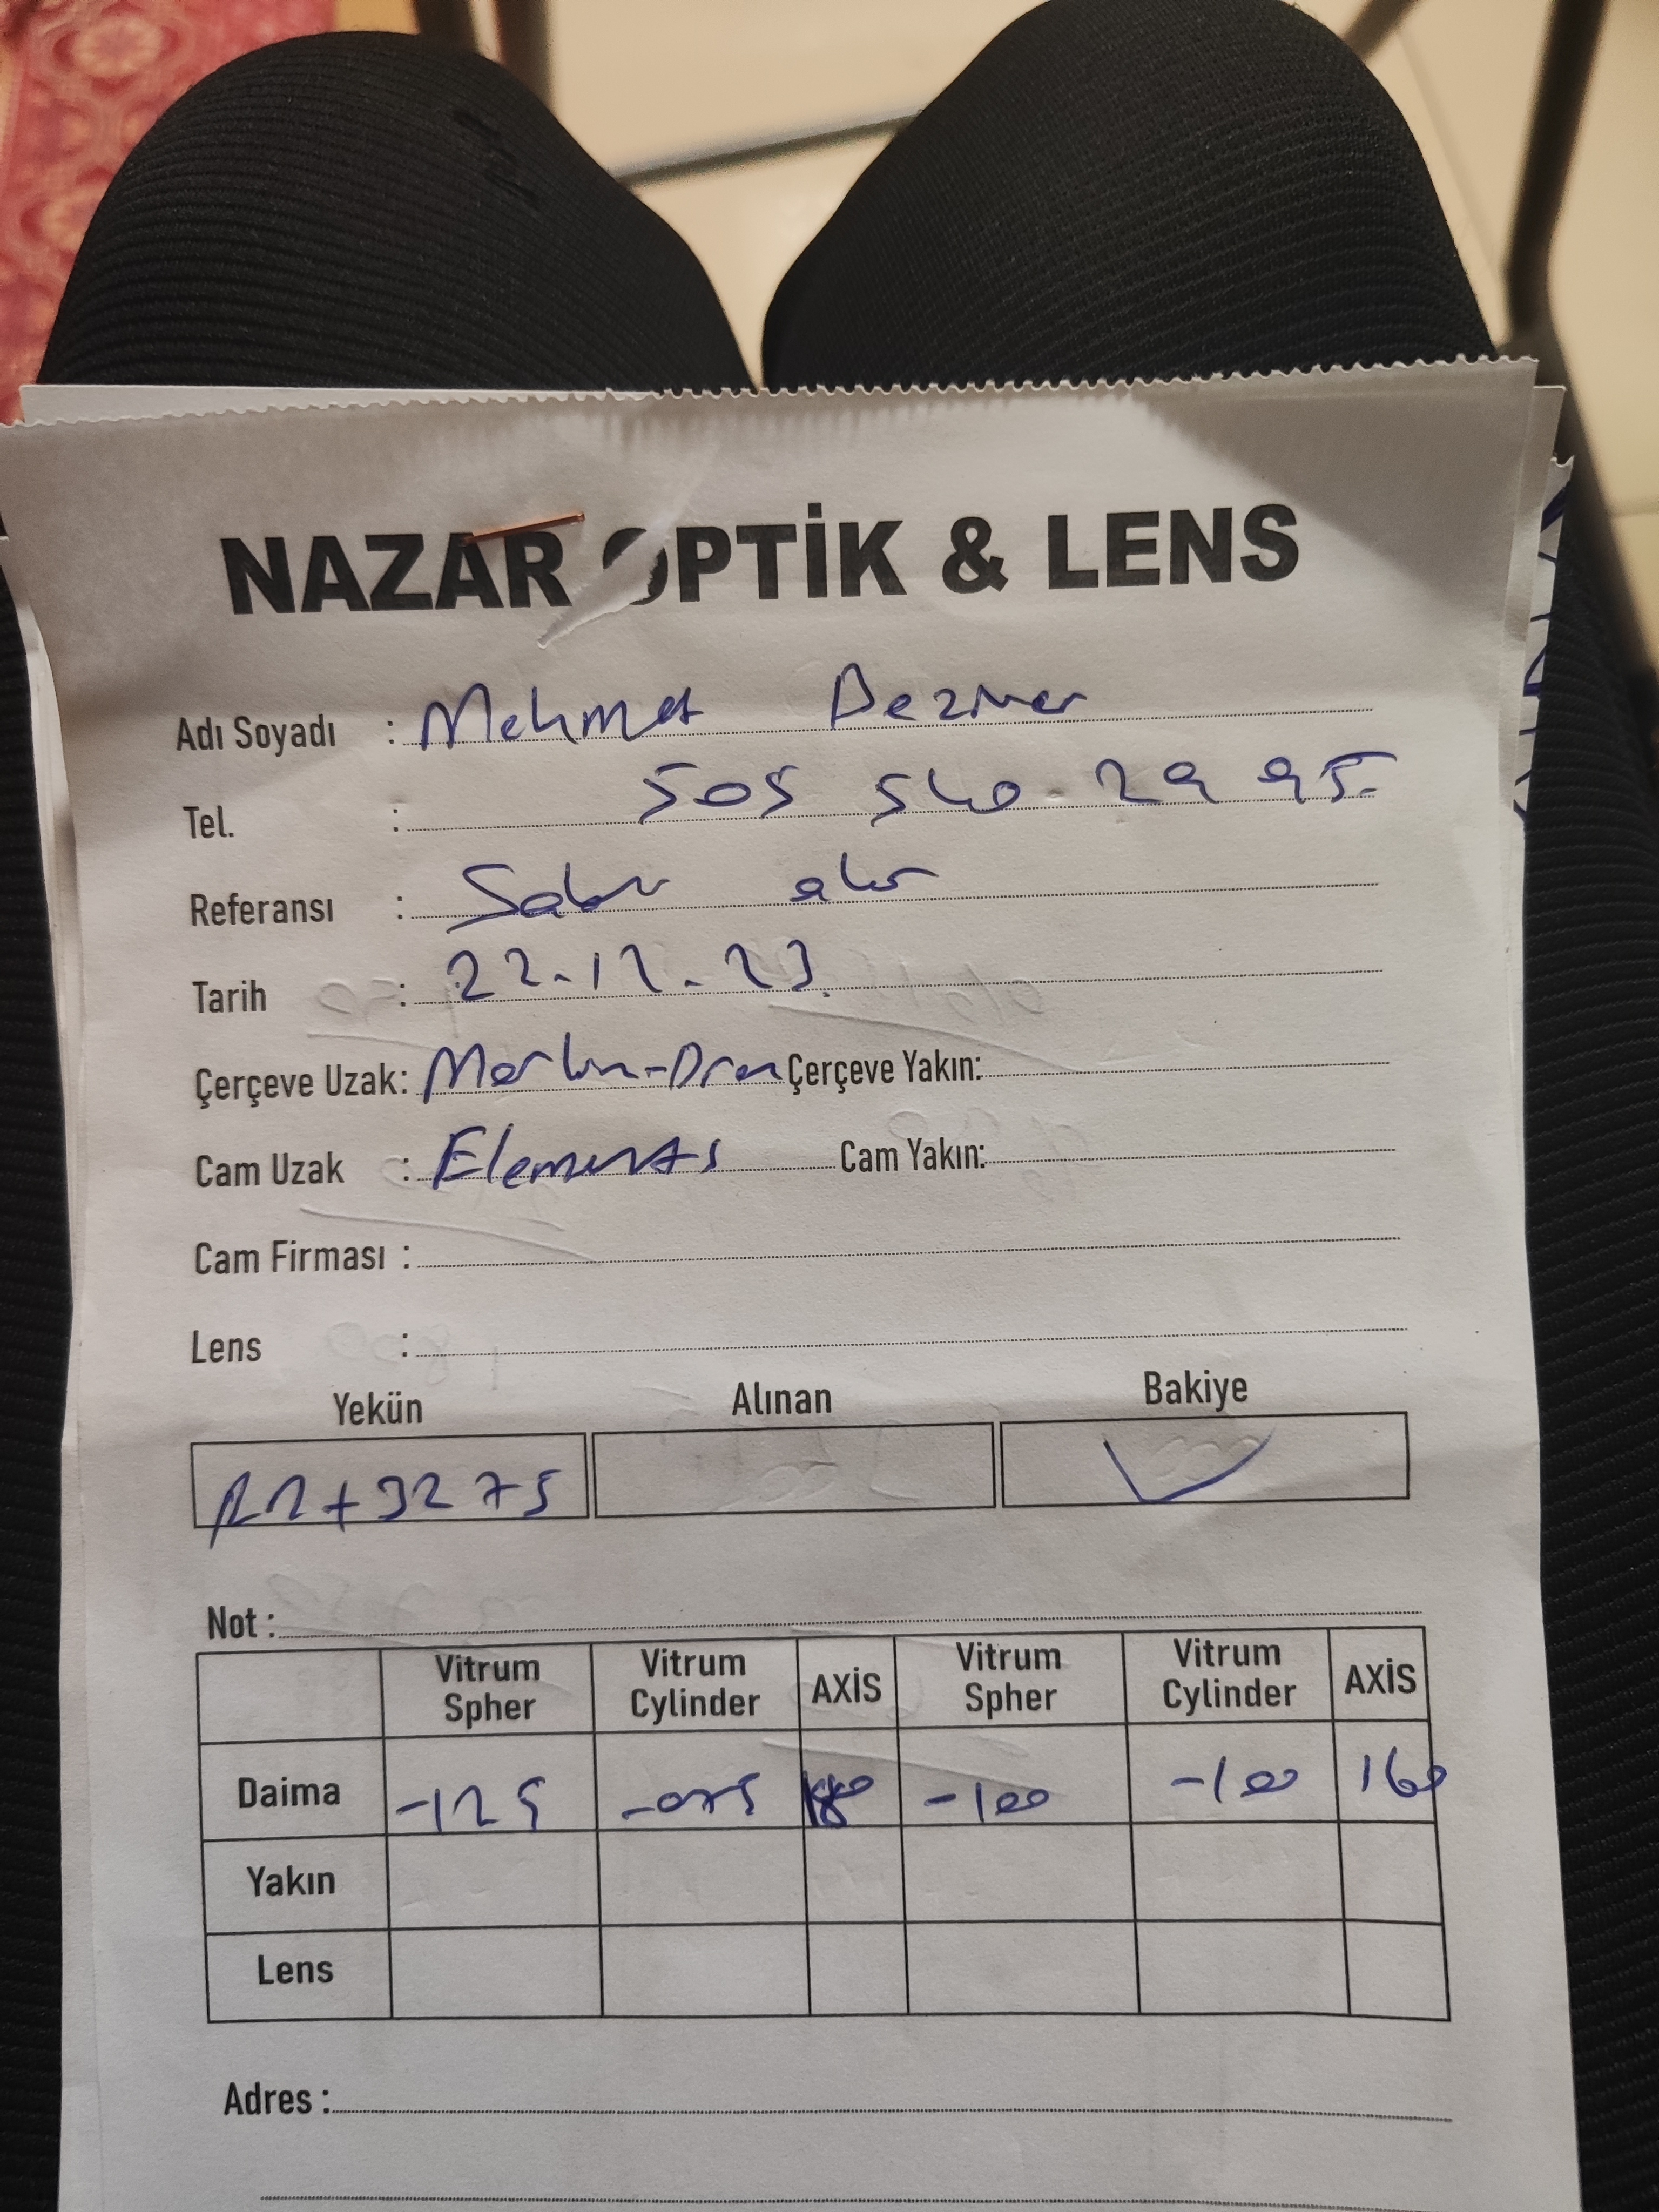 NAZAR OPTİK & LENS
Adı Soyadı : Mehmet
Tel. : 505 540 29 95
Referansı :
Tarih : 22.12.23
Çerçeve Uzak: Çerçeve Yakın:
Cam Uzak : Elements Cam Yakın:
Cam Firması :
Lens :
Yekün Alınan Bakiye
+3275
Not :
Vitrum Spher Vitrum Cylinder AXİS Vitrum Spher Vitrum Cylinder AXİS
Daima -125 -075 180 -100 -100 160
Yakın
Lens
Adres :